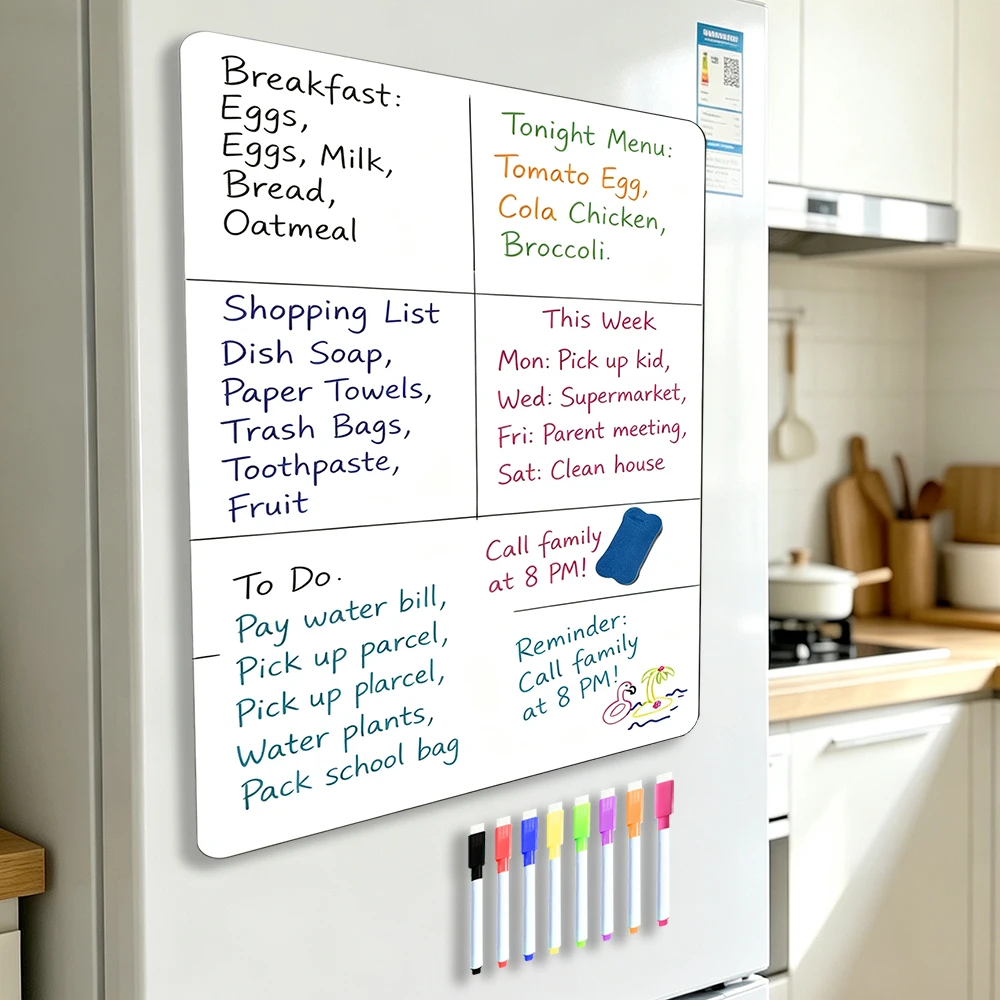 Breakfast:
Eggs,
Eggs, Milk,
Bread,
Oatmeal
Tonight Menu:
Tomato Egg,
Cola Chicken,
Broccoli.
Shopping List
Dish Soap,
Paper Towels,
Trash Bags,
Toothpaste,
Fruit
This Week
Mon: Pick up kid,
Wed: Supermarket,
Fri: Parent meeting,
Sat: Clean house
To Do.
Pay water bill,
Pick up parcel,
Pick up plarcel,
Water plants,
Pack school bag
Call family
at 8 PM!
Reminder:
Call family
at 8 PM!